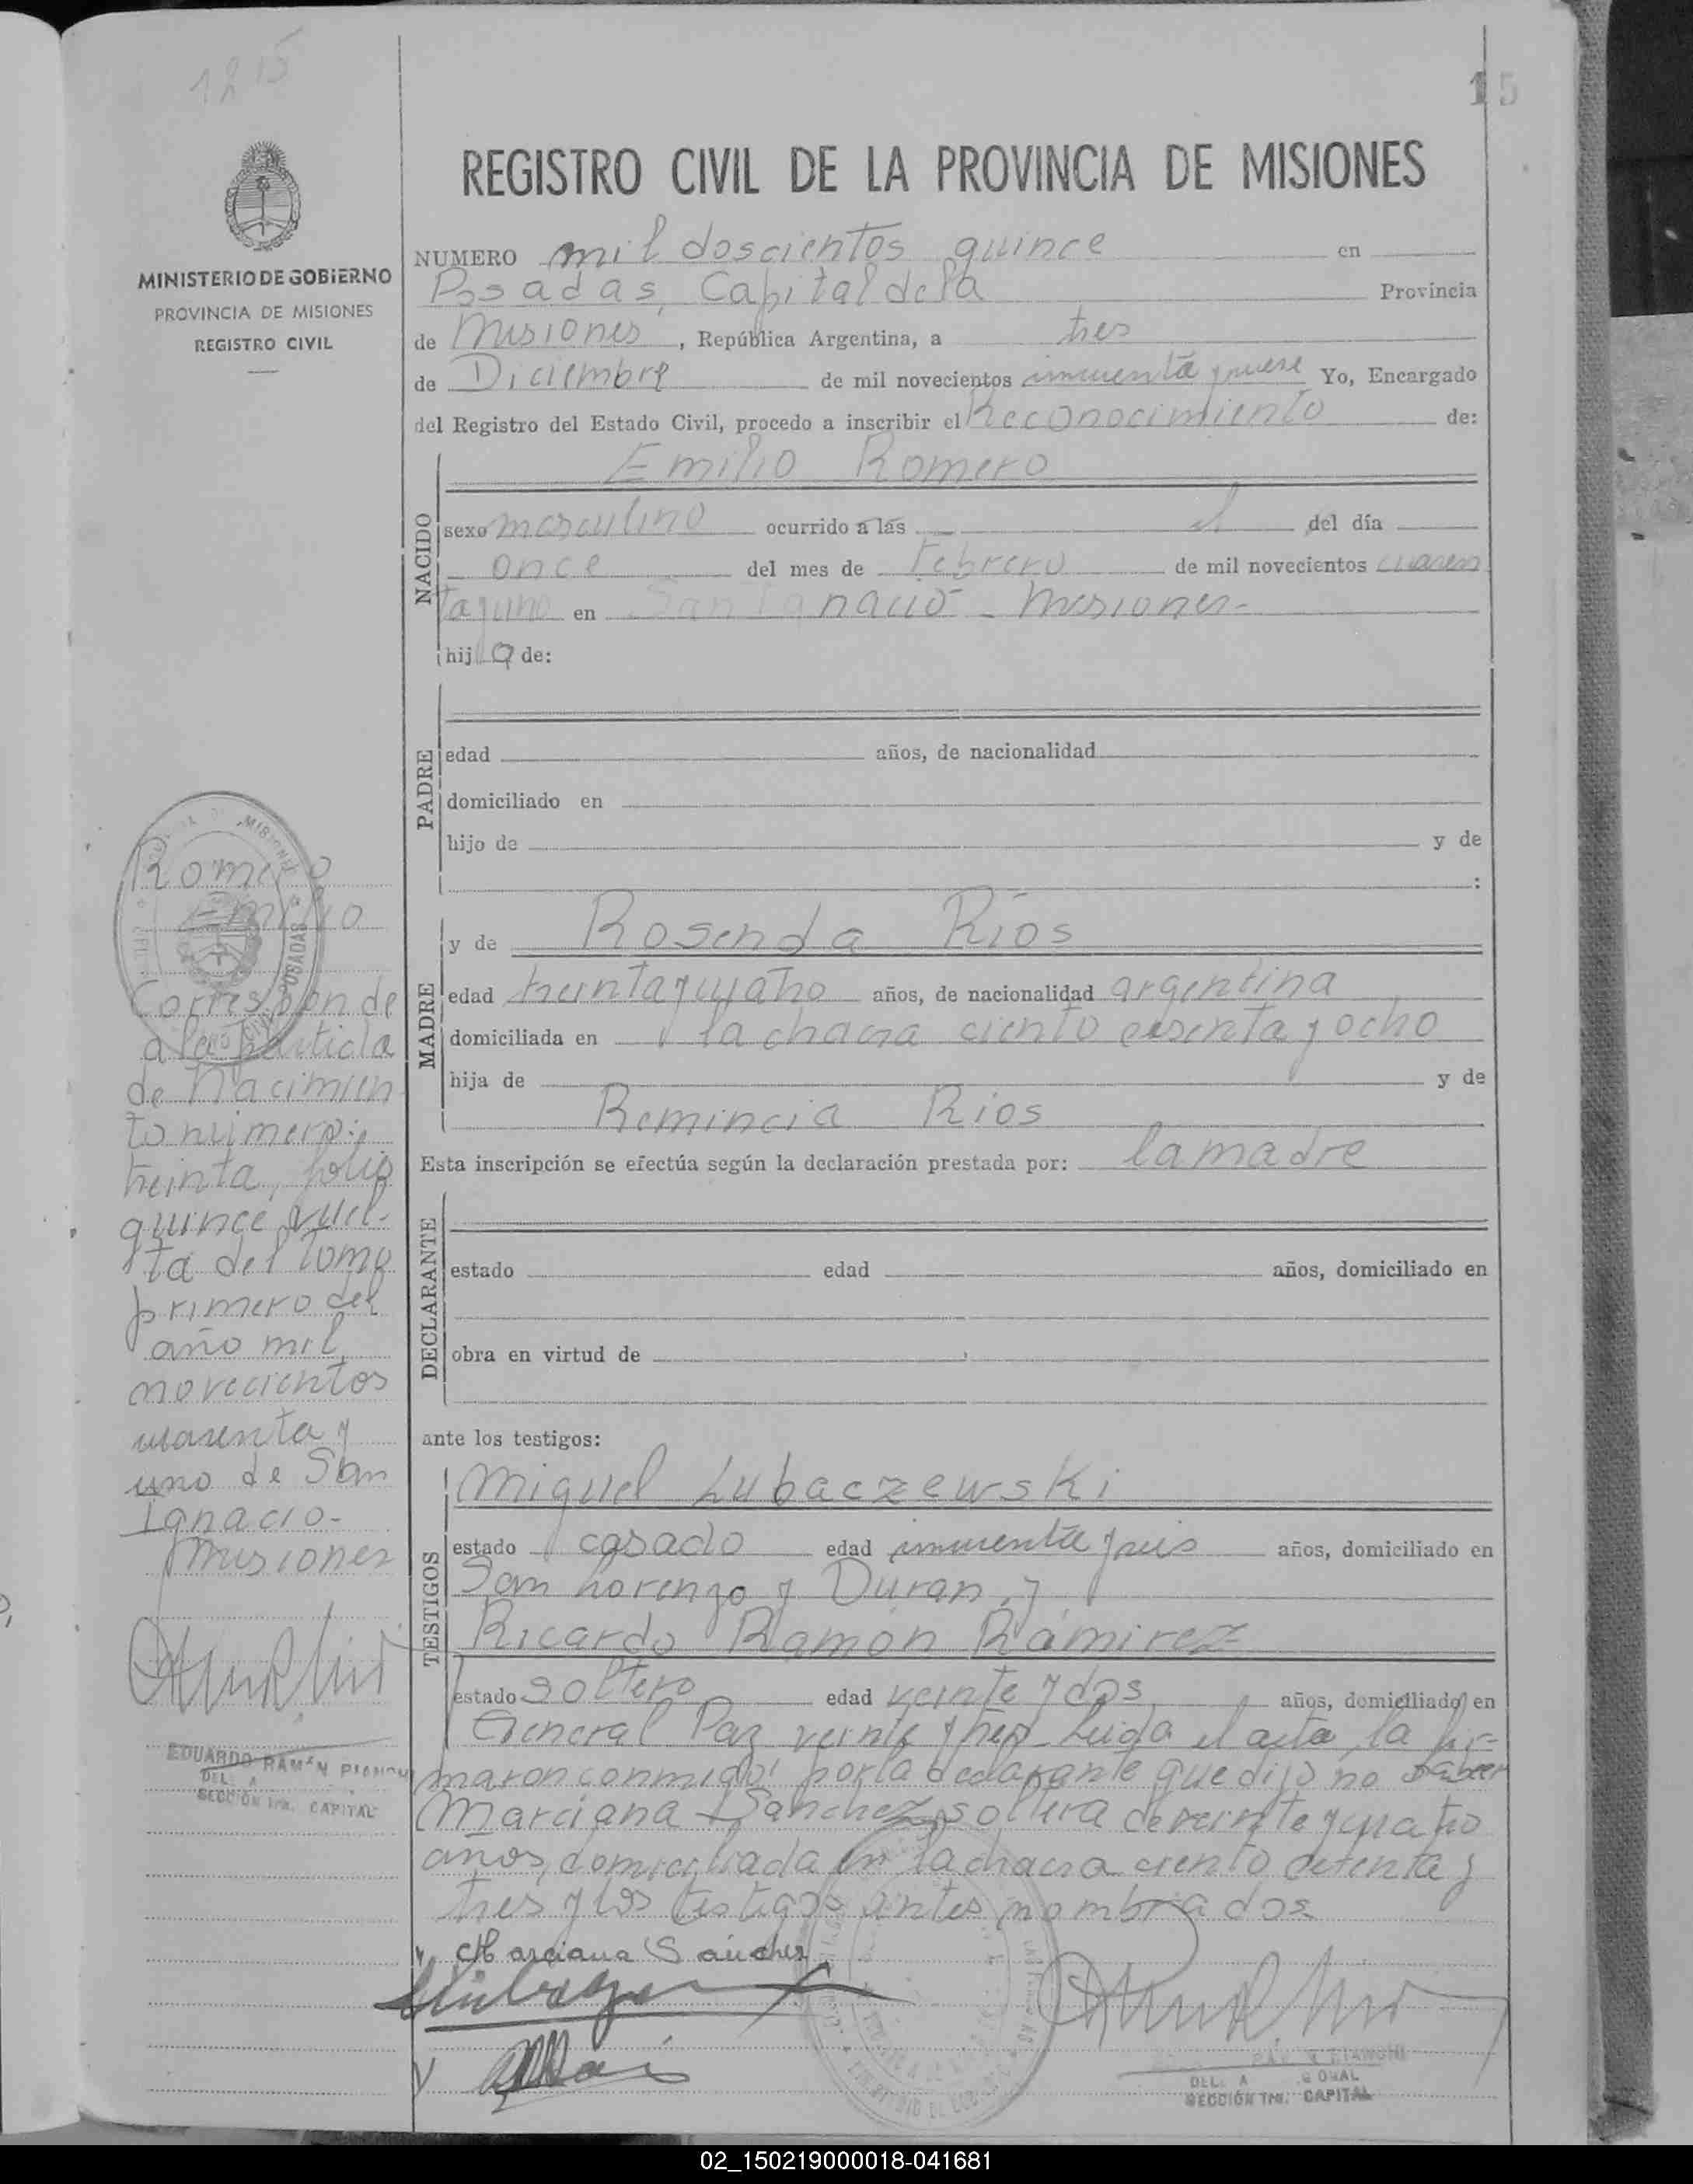 1215
15
REGISTRO CIVIL DE LA PROVINCIA DE MISIONES
MINISTERIO DE GOBIERNO
PROVINCIA DE MISIONES
REGISTRO CIVIL
NUMERO mil doscientos quince en
Posadas, Capital de la Provincia
de Misiones, República Argentina, a tres
de Diciembre de mil novecientos cincuenta y nueve Yo, Encargado
del Registro del Estado Civil, procedo a inscribir el Reconocimiento de:
Emilio Romero
NACIDO
sexo masculino ocurrido a las el del día
once del mes de Febrero de mil novecientos cuaren
ta y uno en San Ignacio - Misiones-
hijo de:
PADRE
edad años, de nacionalidad
domiciliado en
hijo de y de
:
MADRE
y de Rosenda Ríos
edad treinta y cuatro años, de nacionalidad argentina
domiciliada en la chacra ciento sesenta y ocho
hija de y de
Remincia Ríos
Esta inscripción se efectúa según la declaración prestada por: la madre
DECLARANTE
estado edad años, domiciliado en
obra en virtud de
ante los testigos:
TESTIGOS
Miguel Lubaczewski
estado casado edad cincuenta y seis años, domiciliado en
San Lorenzo y Duran, y
Ricardo Ramón Ramirez
estado soltero edad veinte y dos años, domiciliado en
General Paz veinte y tres- Leida el acta, la fir=
maron conmigo por la declarante que dijo no saber
Marciana Sanchez, soltera de veinte y cuatro
años, domiciliada en la chacra ciento setenta y
tres y los testigos antes nombrados
Marciana Sánchez
Romero
Emilio
Corresponde
a la partida
de Nacimien
to número:
treinta, folio
quince vuel-
ta del tomo
primero del
año mil
novecientos
cuarenta y
uno de San
Ignacio-
Misiones
EDUARDO RAMÓN BIANCHI
SECCIÓN 1ra. CAPITAL
BIANCHI
SECCIÓN 1ra. CAPITAL
02_150219000018-041681